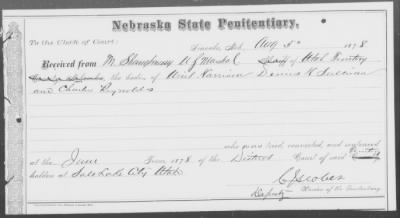 Nebraska State Penitentiary,
To the Clerk of Court: Lincoln, Neb., Aug 5th 1878
Received from M. Shaughnessy U S Marshal of Utah Territory
the bodies of Dennis H. Sullivan
and Charles Reynolds
who was tried, convicted, and sentenced
at the June Term 1878 of the District Court of said Territory
holden at Salt Lake City Utah
Deputy Warden of the Penitentiary.